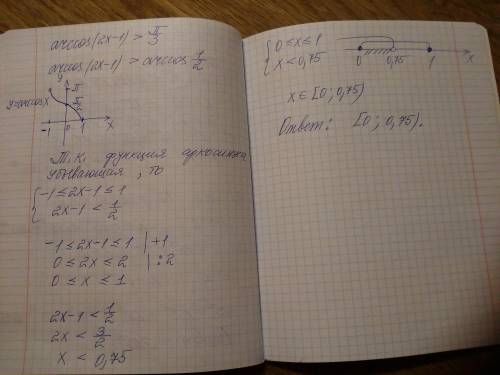 arccos(2x-1) > π/3
arccos(2x-1) > arccos 1/2
y
π
y=arccosx
π/2
-1 0 1 x
Т.к. функция арккосинуса
убывающая, то
{ -1≤2x-1≤1
2x-1 < 1/2
-1≤2x-1≤1 |+1
0≤2x≤2 |:2
0≤x≤1
2x-1 < 1/2
2x < 3/2
x < 0,75
{ 0≤x≤1
x<0,75
0 0,75 1 x
x∈[0; 0,75)
Ответ: [0; 0,75).